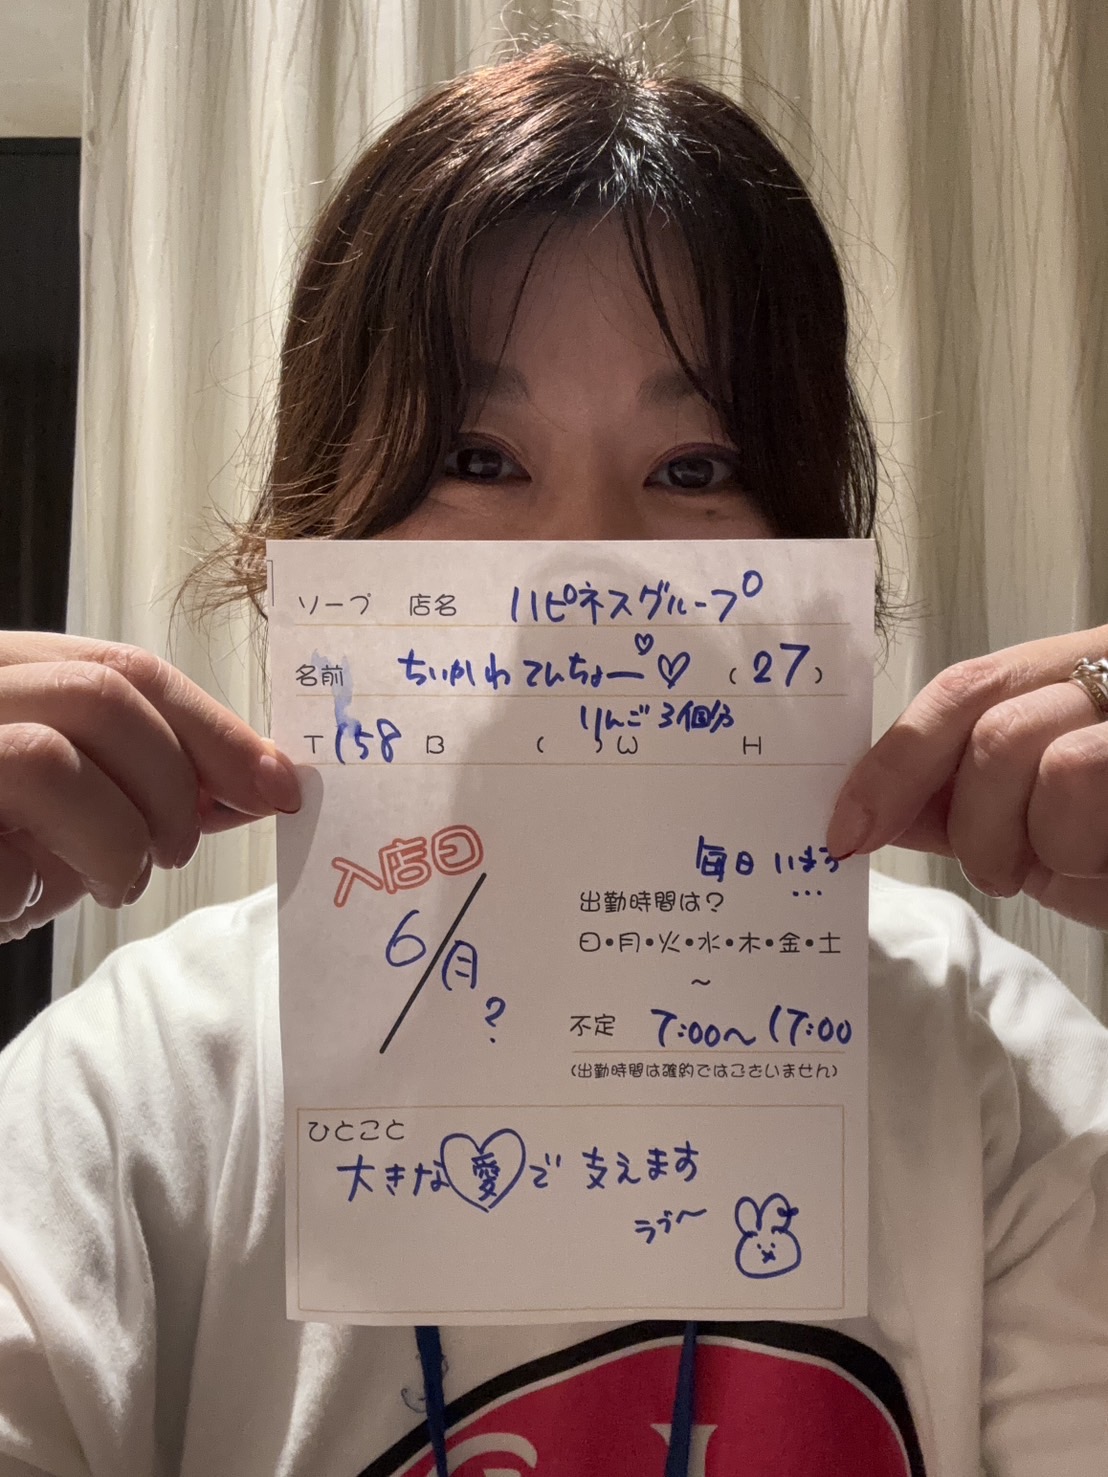 ソープ 店名 ハピネスグループ
名前 ちいかわてんちょー♡♡ (27)
りんご3個分
T 158 B ( ) W H
入店日
6/月?
毎日 います
...
出勤時間は?
日・月・火・水・木・金・土
~
不定 7:00~17:00
(出勤時間は確約ではございません)
ひとこと
大きな愛で支えます
ラブ~